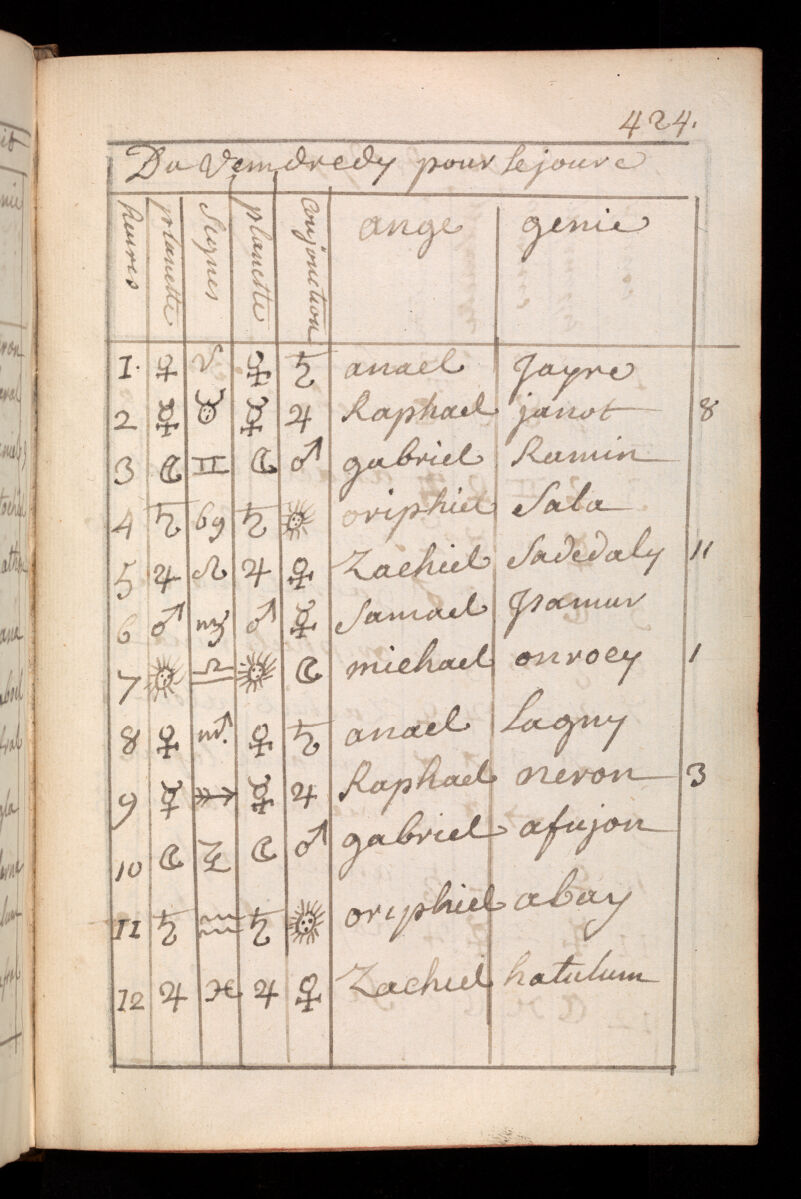 424.
Du Vemdredy pour le joure
heures planette Signes planette Conjonction ange genie
1. ♀ ♈ ♀ ♄ anael Jayre
2 ☿ ♉ ☿ ♃ Raphael janot 8
3 ☾ ♊ ☾ ♂ gabriel Ramin
4 ♄ ♋ ♄ ☉ oriphiel Sala
5 ♃ ♌ ♃ ♀ Zachiel Sadedaly 11
6 ♂ ♍ ♂ ☿ Samael
7 ☉ ♎ ☉ ☾ michael onroey 1
8 ♀ ♏ ♀ ♄ anael Lagny
9 ☿ ♐ ☿ ♃ Raphael neron 3
10 ☾ ♑ ☾ ♂ gabriel afujon
11 ♄ ♒ ♄ ☉ oriphiel abay
12 ♃ ♓ ♃ ♀ Zachiel hatulum